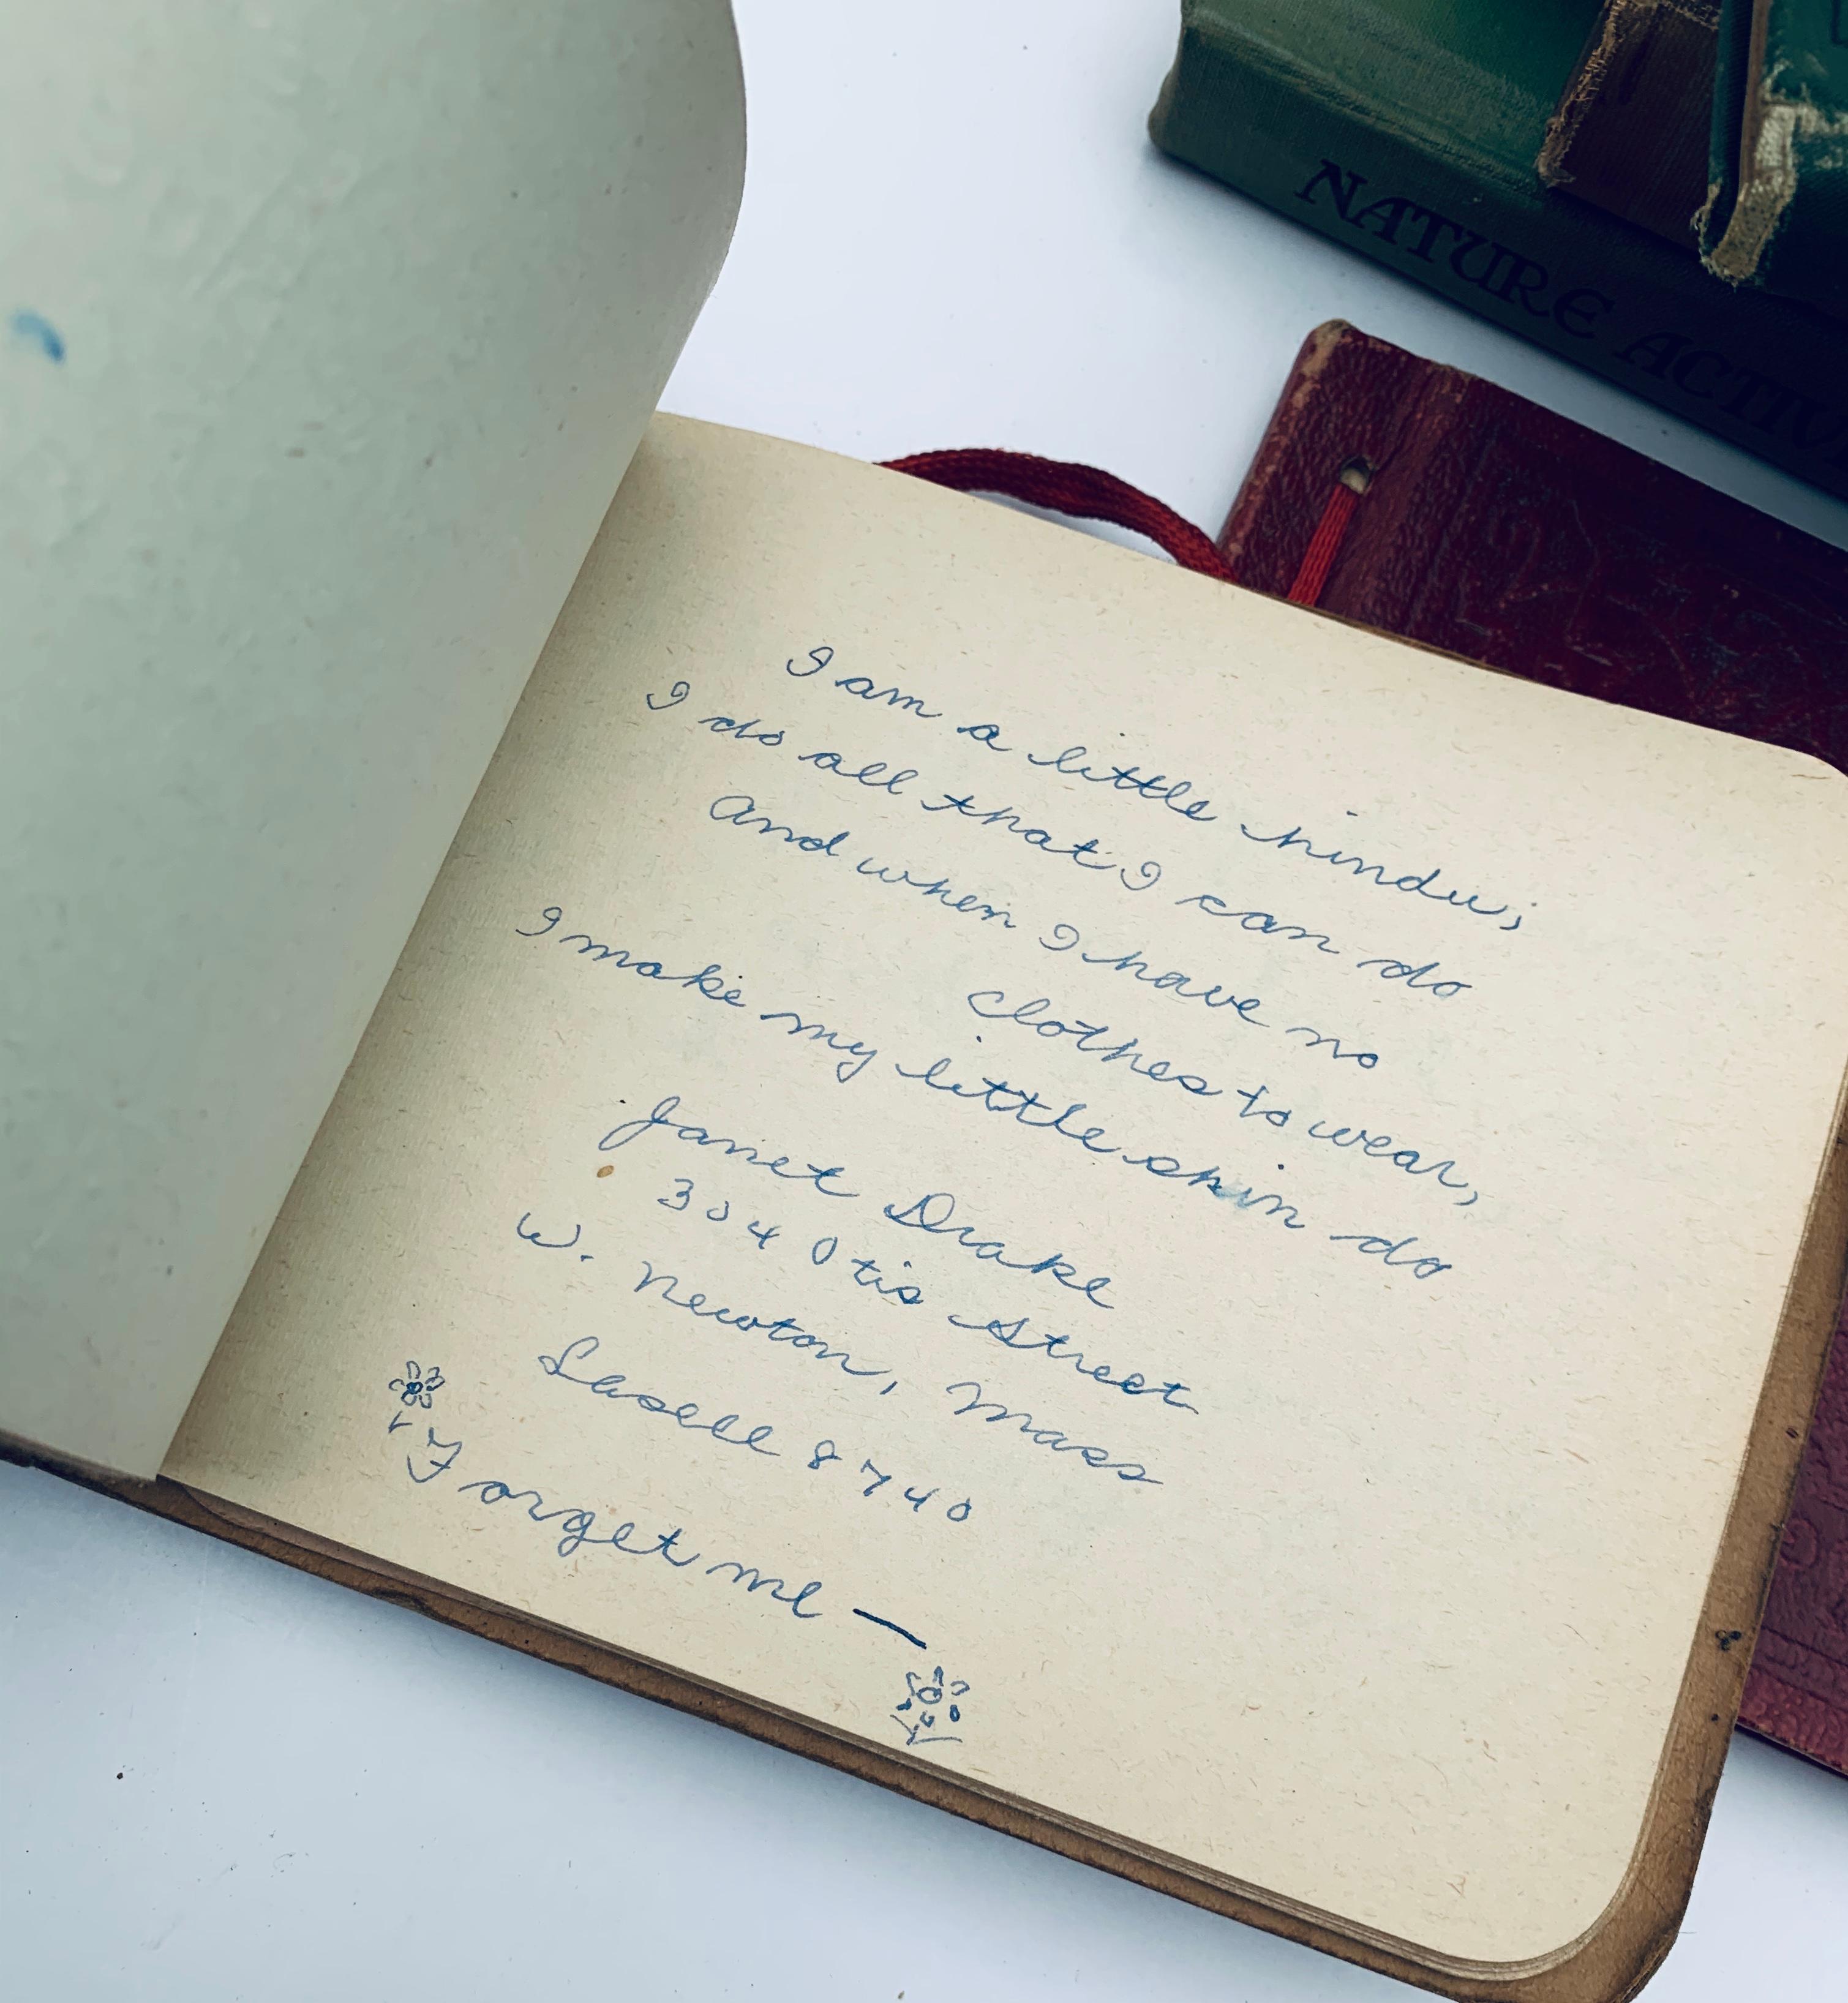 NATURE ACTIV
I am a little hindu;
I do all that I can do
And when I have no
clothes to wear,
I make my little skin do
Janet Drake
304 Otis Street
W. Newton, Mass
Lasell 8740
Forget me —